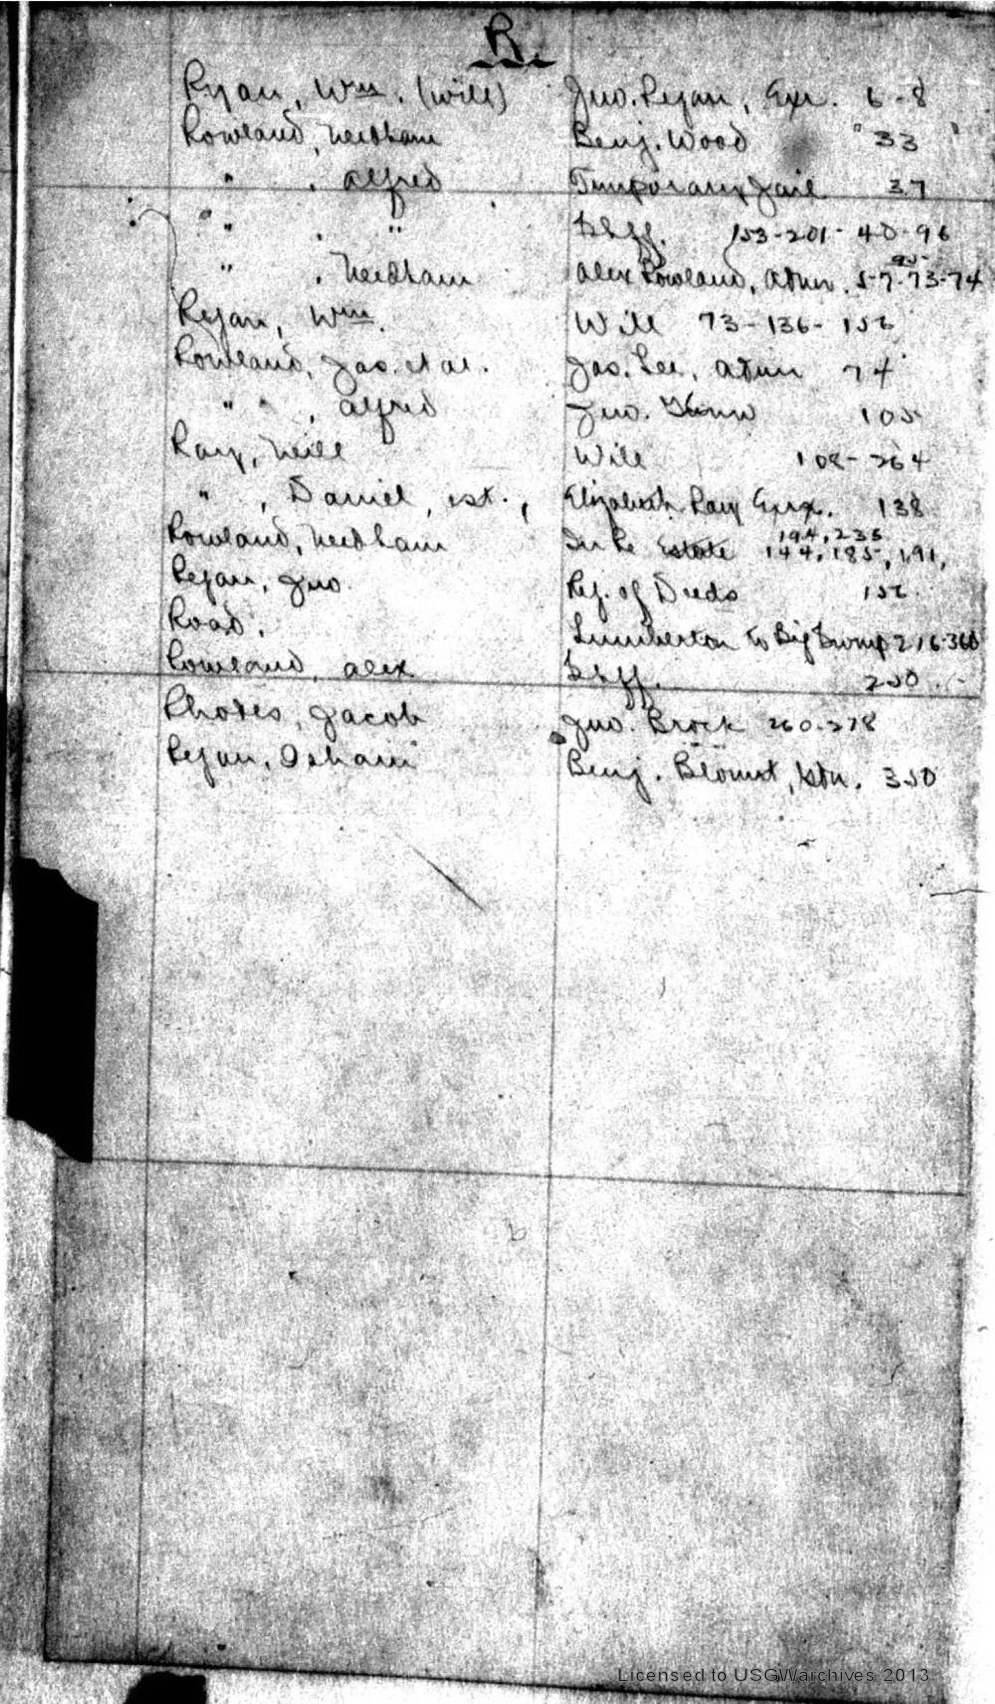 R.
Ryan, Wm. (will) Jno. Ryan, Exr. 6-8
Rowland, Needham Benj. Wood "33"
" , Alfred Temporary Jail 37
" , " Shff. 153-201-40-96
95-
" , Needham Alex Rowland, Admr. 57-73-74
Ryan, Wm. Will 73-136-152
Rowland, Jas. et al. Jas. Lee, Admr 74
" " , Alfred Jno. 105
Ray, Neill Will 108-264
" , Daniel, est., Elizabeth Ray Exrx. 138
194, 235
Rowland, Needham In Re Estate 144, 185, 191,
Ryan, Jno. Reg. of Deeds 152
Road, Lumberton to Big Swamp 216-360
Rowland, Alex Shff. 250
Rhodes, Jacob Jno. Brock 260-278
Ryan, Isham Benj. Blount, 350
Licensed to USGWarchives 2013